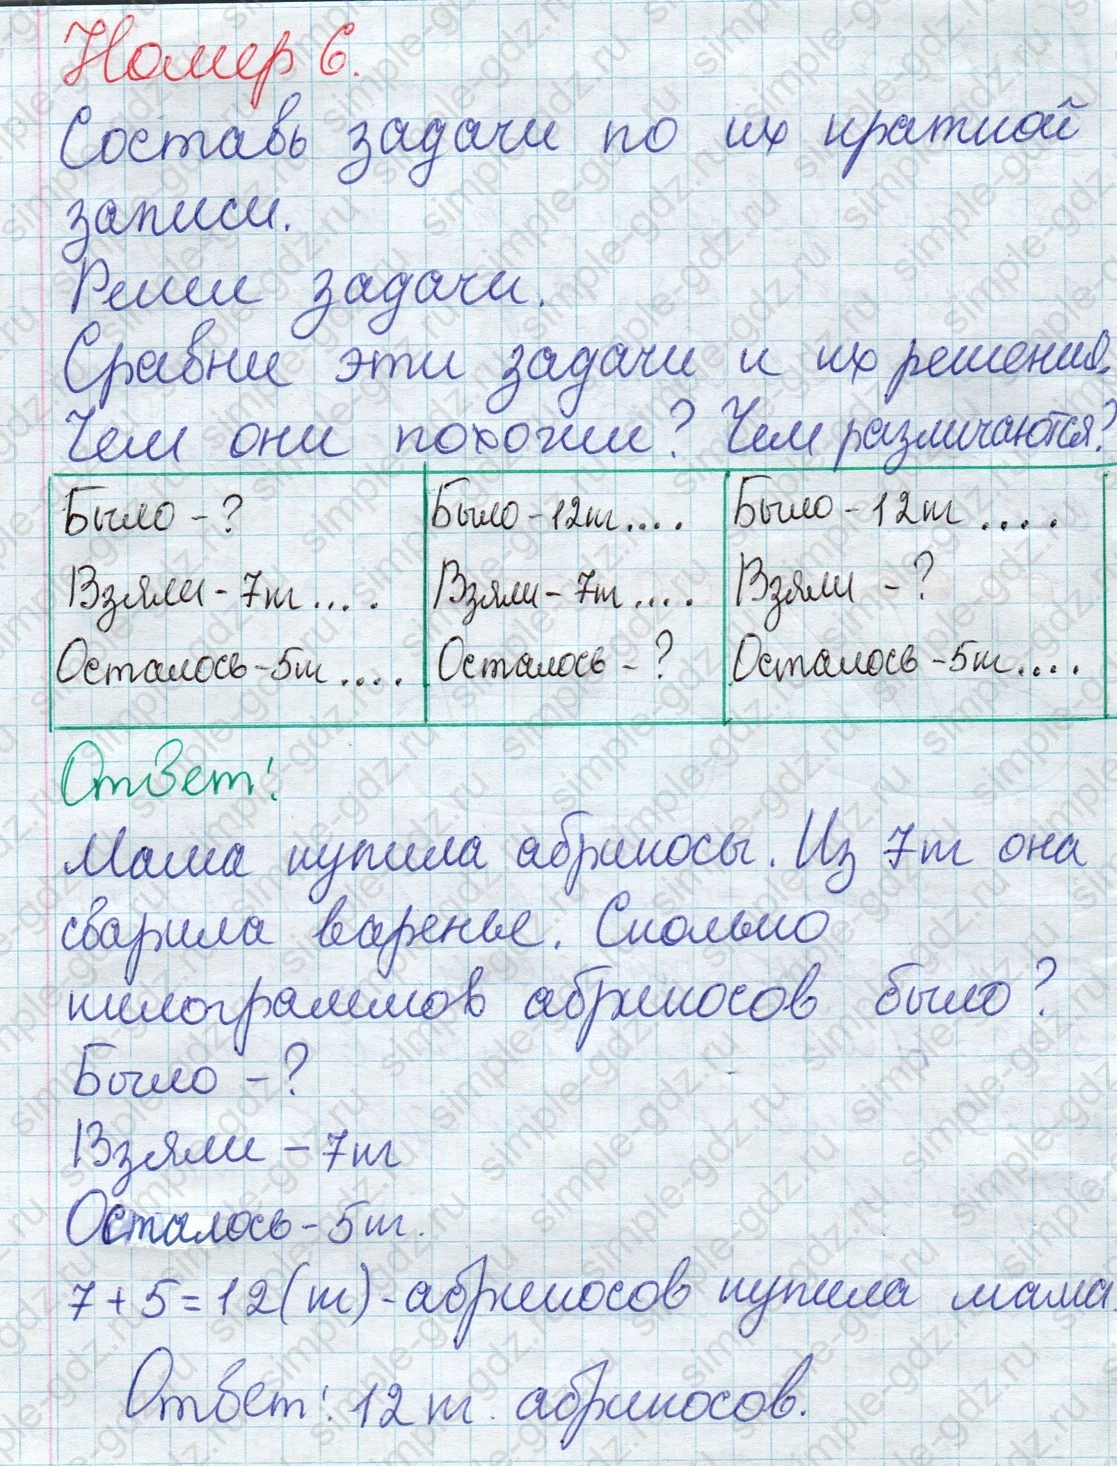 Номер 6.
Составь задачи по их краткой
записи.
Реши задачи.
Сравни эти задачи и их решения.
Чем они похожи? Чем различаются?
Было - ? Было - 12т.... Было - 12т ....
Взяли - 7т.... Взяли - 7т.... Взяли - ?
Осталось - 5т.... Осталось - ? Осталось - 5т....
Ответ:
Мама купила абрикосы. Из 7т она
сварила варенье. Сколько
килограммов абрикосов было?
Было - ?
Взяли - 7т
Осталось - 5т.
7 + 5 = 12(т) - абрикосов купила мама.
Ответ: 12т. абрикосов.
simple-gdz.ru